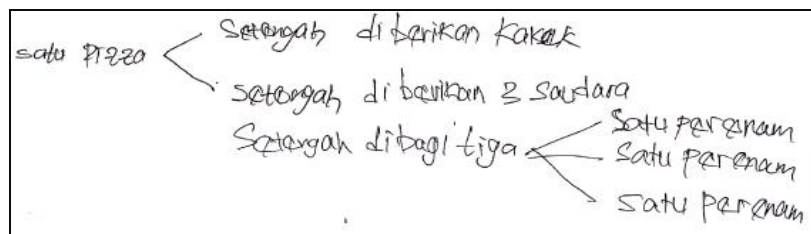 satu Pizza
Setengah diberikan Kakak
setengah diberikan 3 Saudara
Setengah dibagi tiga
Satu perenam
Satu perenam
Satu perenam